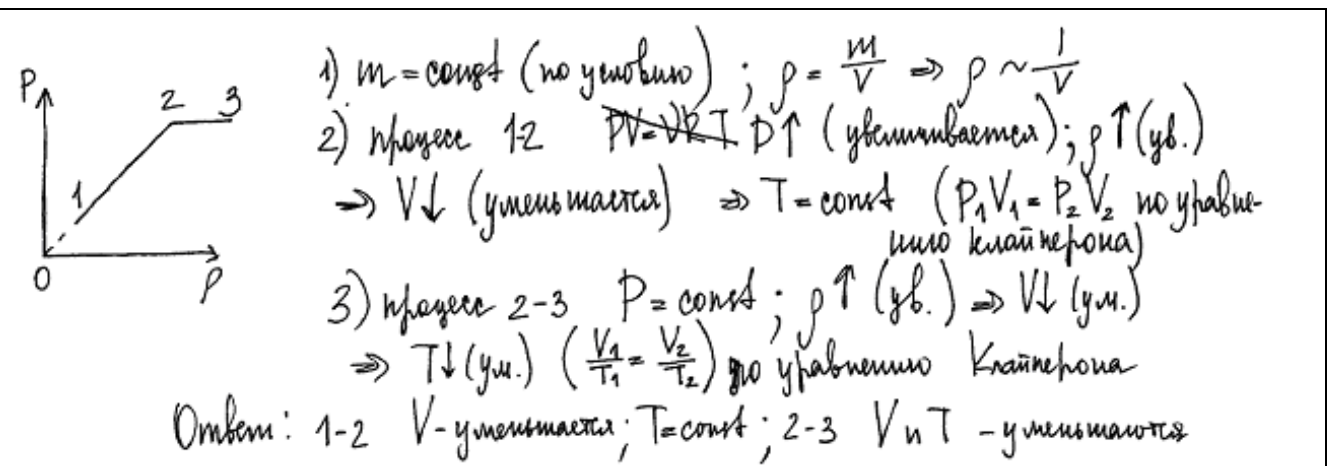 1) m = const (по условию) ; ρ = m/V ⇒ ρ ~ 1/V
P
2 3
1
0
ρ
2) процесс 1-2 PV=νRT P↑ (увеличивается); ρ↑(ув.)
⇒ V↓ (уменьшается) ⇒ T = const (P₁V₁ = P₂V₂ по уравне-
нию клайперона)
3) процесс 2-3 P = const ; ρ↑ (ув.) ⇒ V↓ (ум.)
⇒ T↓(ум.) (V₁/T₁ = V₂/T₂) по уравнению Клайперона
Ответ: 1-2 V - уменьшается; T=const ; 2-3 V и T - уменьшаются